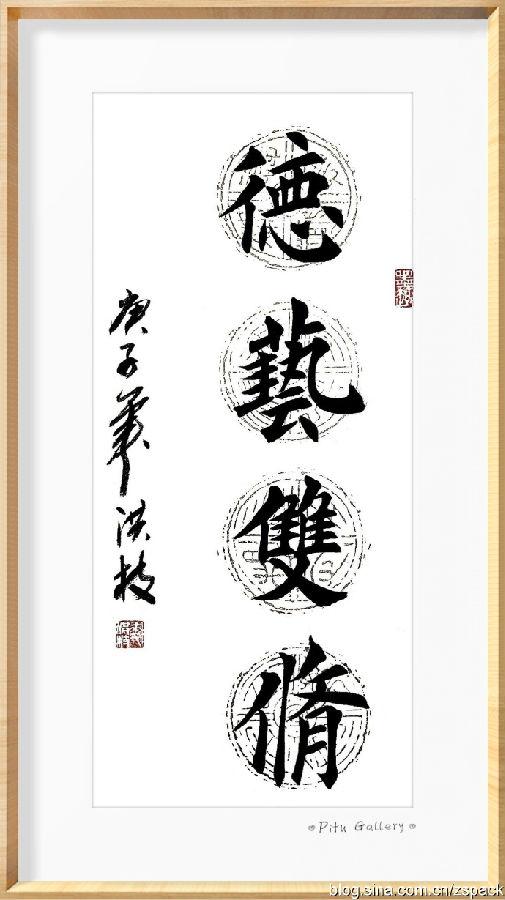 德藝雙脩
庚子 洪枝
Pitu Gallery
blog.sina.com.cn/zspack